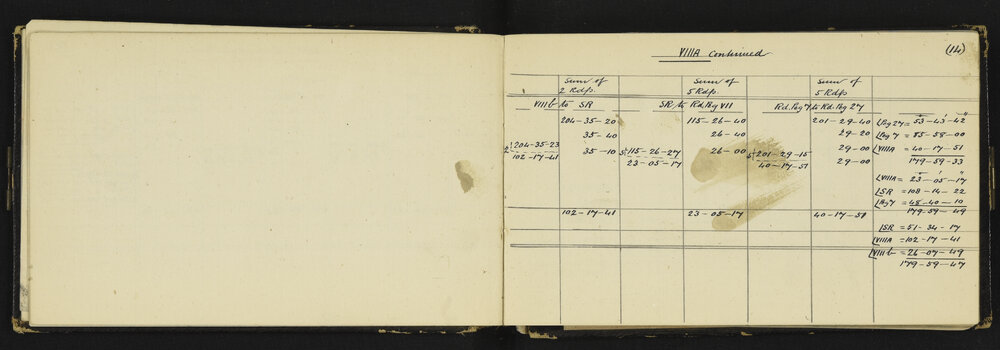 VIIIA Continued
(14)
Sum of 2 Rdgs. Sum of 5 Rdgs. Sum of 5 Rdgs
VIIIb to SR SR to Rd. Peg VII Rd. Peg 7 to Rd. Peg 27
204-35-20 115-26-40 201-29-40 ∠Peg 27 = 53-43-42
35-40 26-40 29-20 ∠Peg 7 = 85-58-00
2) 204-35-23 35-10 5) 115-26-27 26-00 5) 201-29-15 29-00 ∠VIIIA = 40-17-51
102-17-41 23-05-17 40-17-51 29-00 179-59-33
∠VIIIA = 23-05-17
∠SR = 108-14-22
∠Peg 7 = 48-40-10
102-17-41 23-05-17 40-17-51 179-59-49
∠SR = 51-34-17
∠VIIIA = 102-17-41
∠VIIIb = 26-07-49
179-59-47